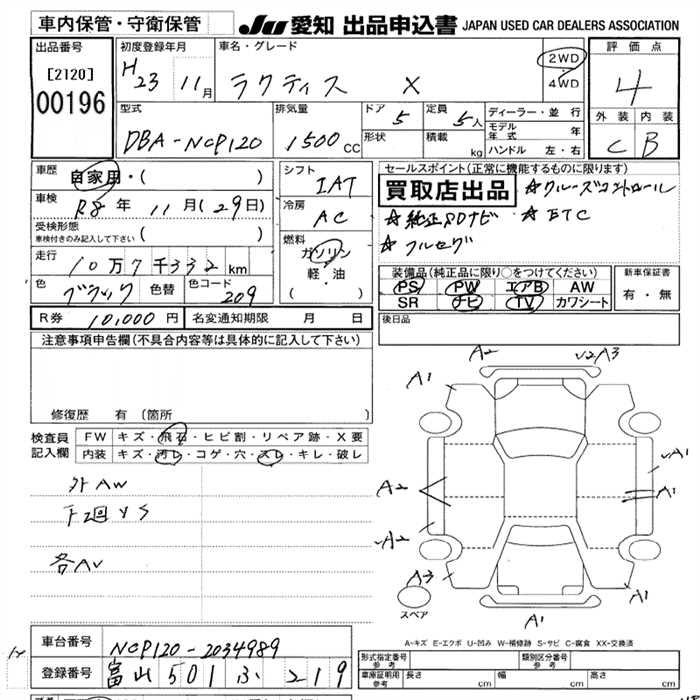 車内保管・守衛保管 JU 愛知 出品申込書 JAPAN USED CAR DEALERS ASSOCIATION
出品番号 [2120] 00196
初度登録年月 H23 11月
車名・グレード ラクティス X
2WD・4WD
評価点 4
外装 C 内装 B
型式 DBA-NCP120
排気量 1500CC
ドア 5
形状
定員 5人
積載 kg
ディーラー・並行
モデル年式 年
ハンドル 左・右
車歴 自家用・( )
車検 R8年11月(29日)
受検形態 車検付きのみ記入して下さい ( )
走行 10万7千332km
色 ブラック 色替 色コード 209
シフト IAT
冷房 AC
燃料 ガソリン 軽・油 ( )
セールスポイント(正常に機能するものに限ります)
買取店出品 ☆クルーズコントロール
☆純正SDナビ ☆ETC
☆フルセグ
装備品(純正品に限り○をつけてください)
PS PW エアB AW
SR ナビ TV カワシート
新車保証書 有・無
R券 10,000円 名変通知期限 月 日
後日品
注意事項申告欄(不具合内容等は具体的に記入して下さい)
修復歴 有(箇所 )
検査員記入欄
FW キズ・飛石・ヒビ割・リペア跡・X要
内装 キズ・汚レ・コゲ・穴・スレ・キレ・破レ
外AW
下回YS
各AV
A2 v2A3
A1
vA1
A2 A1
vA2
A3 A1
スペア
A1
A-キズ E-エクボ U-凹み W-補修跡 S-サビ C-腐食 XX-交換済
車台番号 NCP120-2034989
登録番号 富山 501 ふ 219
形式指定番号 参考 類別区分番号 参考
車庫証明用 参考 長さ cm 幅 cm 高さ cm